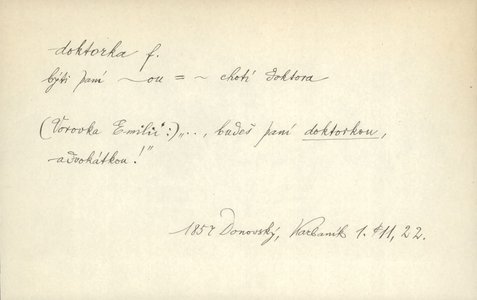 doktorka f.
býti paní ~ou = ~ chotí doktora
(Vorovka Emilii:) „..., budeš paní doktorkou,
advokátkou!"
1857 Donovský, Karbaník 1. 22.